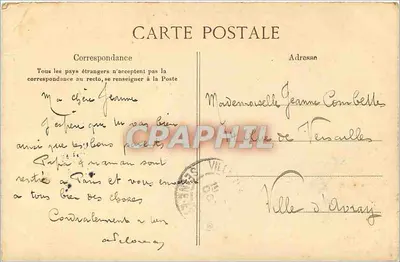 CARTE POSTALE
Correspondance
Tous les pays étrangers n'acceptent pas la
correspondance au recto, se renseigner à la Poste
Adresse
Ma chère Jeanne
J'espère que tu vas bien
ainsi que tes bons parents
Papa & maman sont
à Paris et vous
à tous bien des choses
Cordialement à
Mademoiselle Jeanne Combettes
de Versailles
Ville d'Avray
CPARPHIL